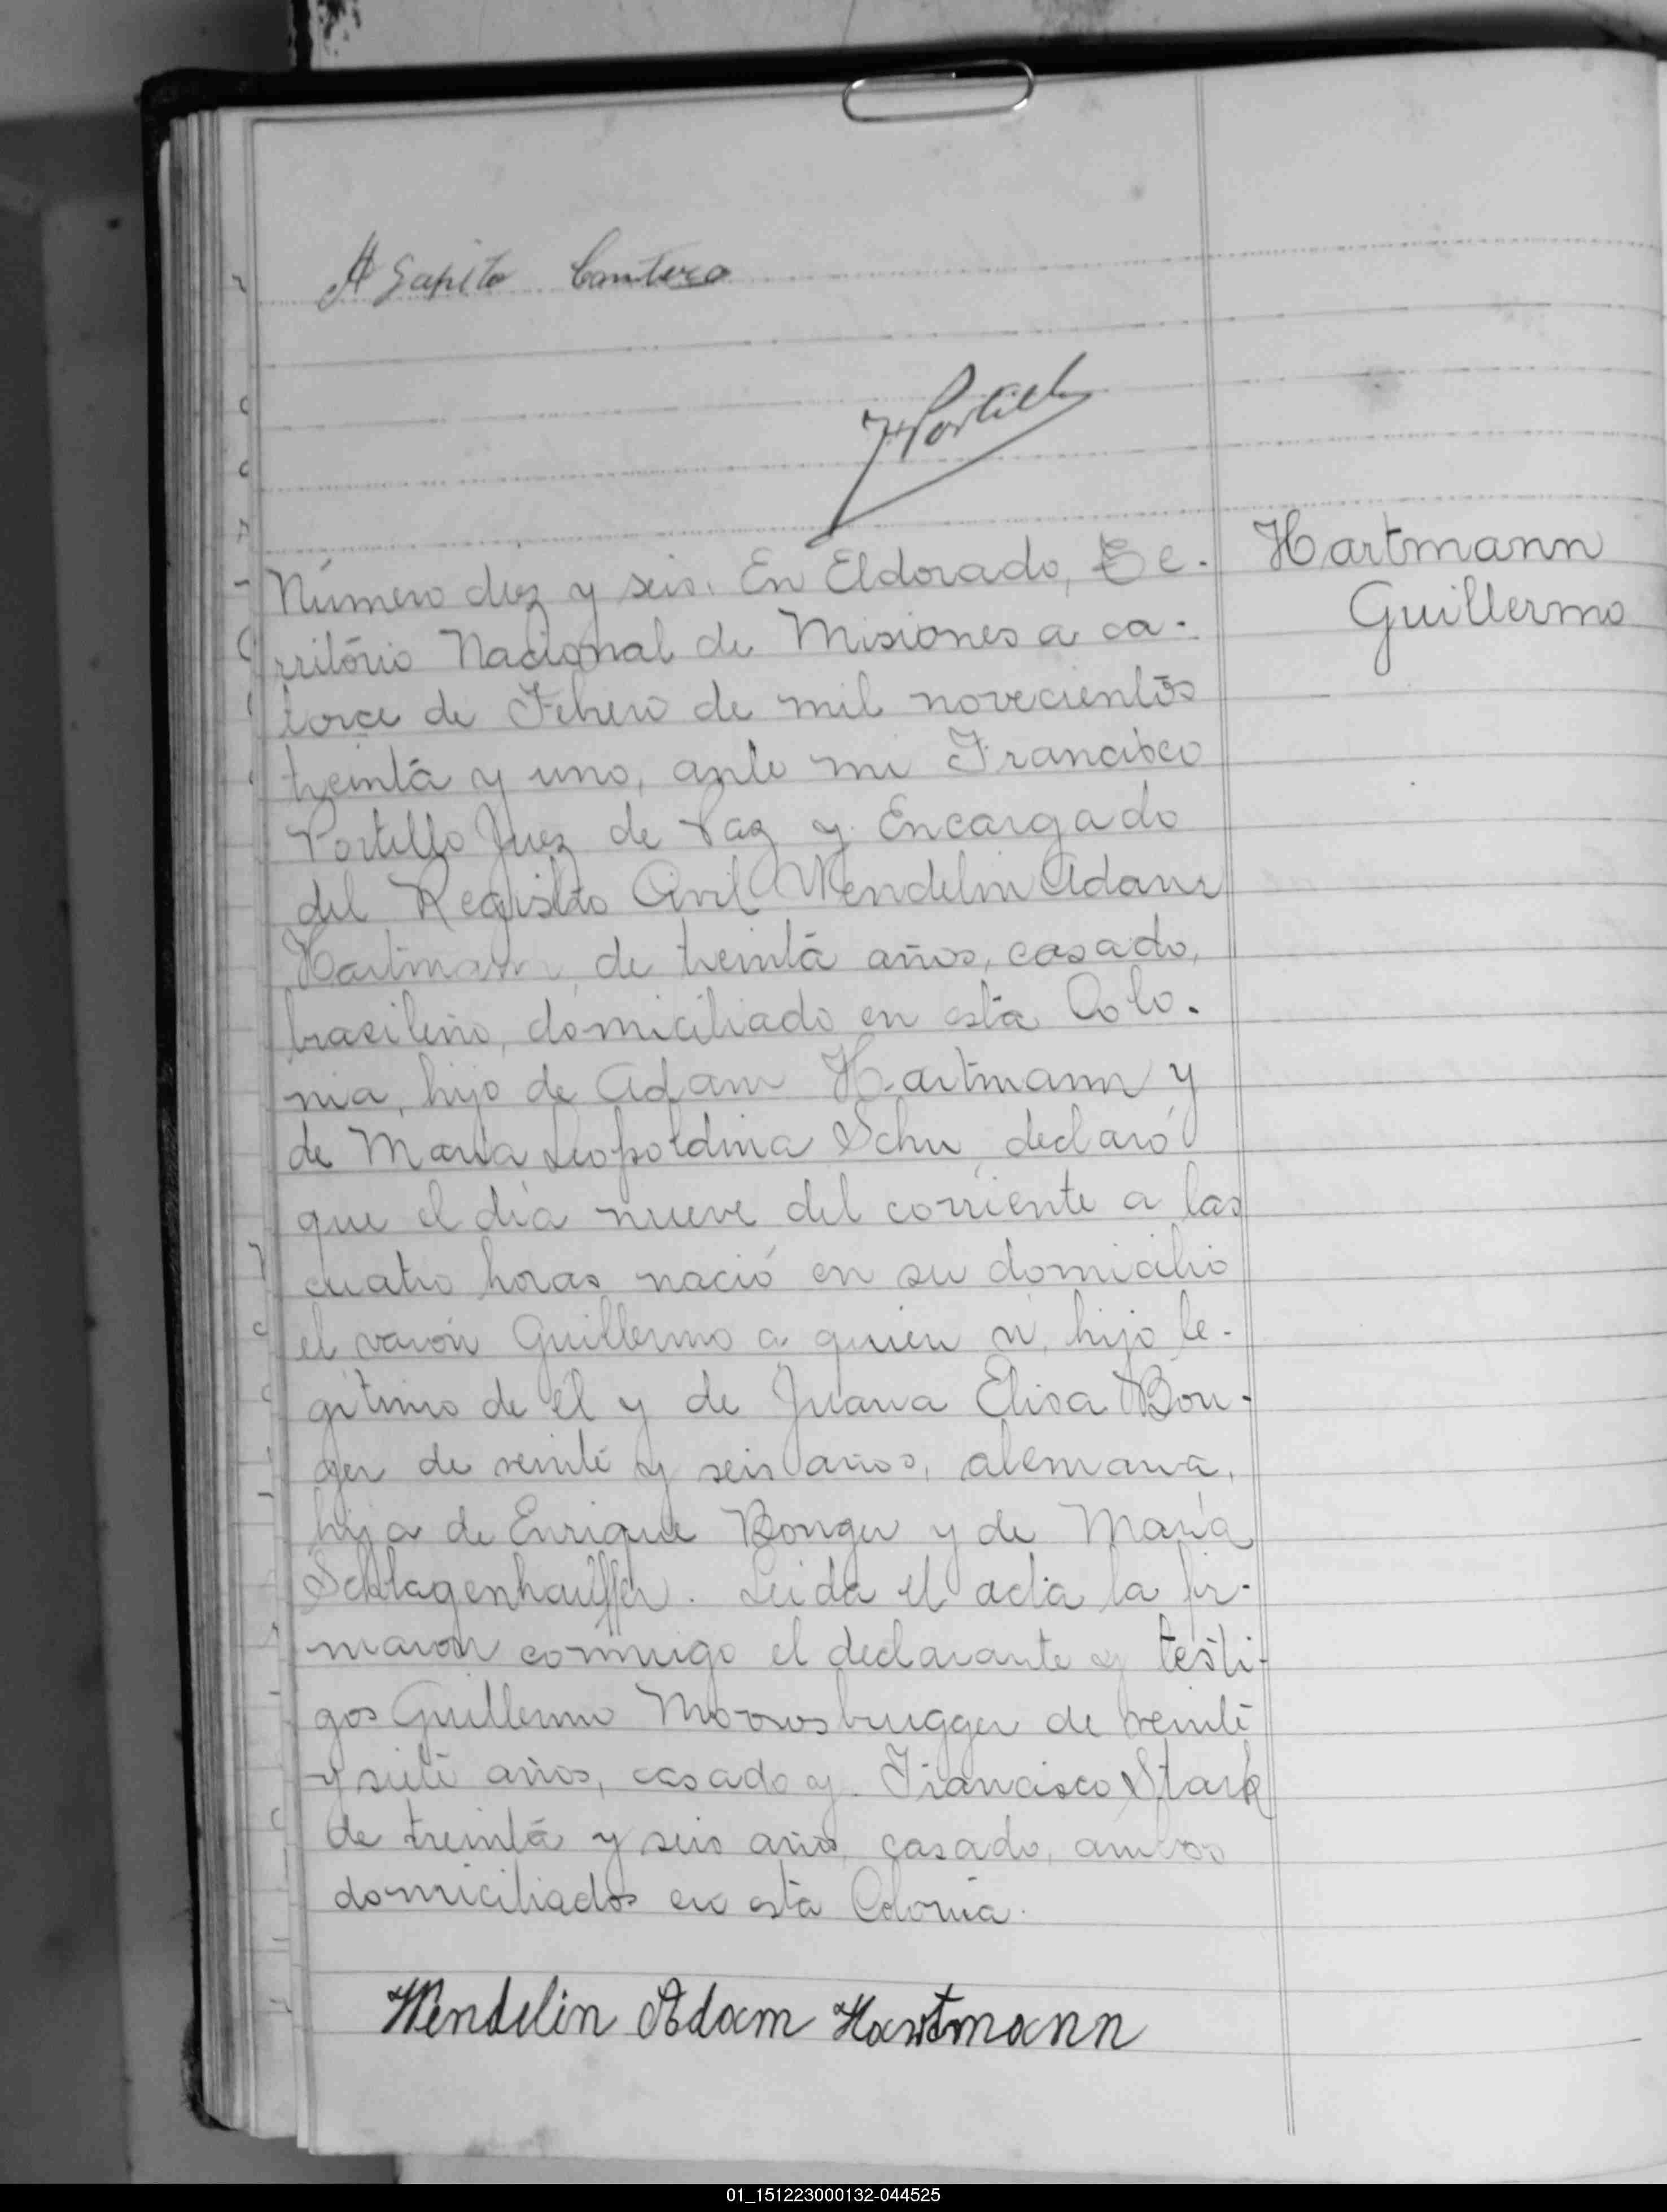 Agapito Cantero
FPortillo
Hartmann
Guillermo
Número diez y seis. En Eldorado, Te-
rritório Nacional de Misiones a ca-
torce de Febrero de mil novecientos
treinta y uno, ante mi Francisco
Portillo Juez de Paz y Encargado
del Registro Civil Wendelin Adam
Hartmann, de treinta años, casado,
brasileño, domiciliado en esta Colo-
nia, hijo de Adam Hartmann y
de María Leopoldina Schu, declaró
que el día nueve del corriente a las
cuatro horas nació en su domicilio
el varón Guillermo a quien vi, hijo le-
gítimo de él y de Juana Elisa Bon-
ger de veinte y seis años, alemana,
hija de Enrique Bonger y de María
Schlagenhauffer. Leida el acta la fir-
maron conmigo el declarante y testi-
gos Guillermo Moosbrugger de veinte
y siete años, casado y Francisco Stark
de treinta y seis años, casado, ambos
domiciliados en esta Colonia.
Wendelin Adam Hartmann
01_151223000132-044525